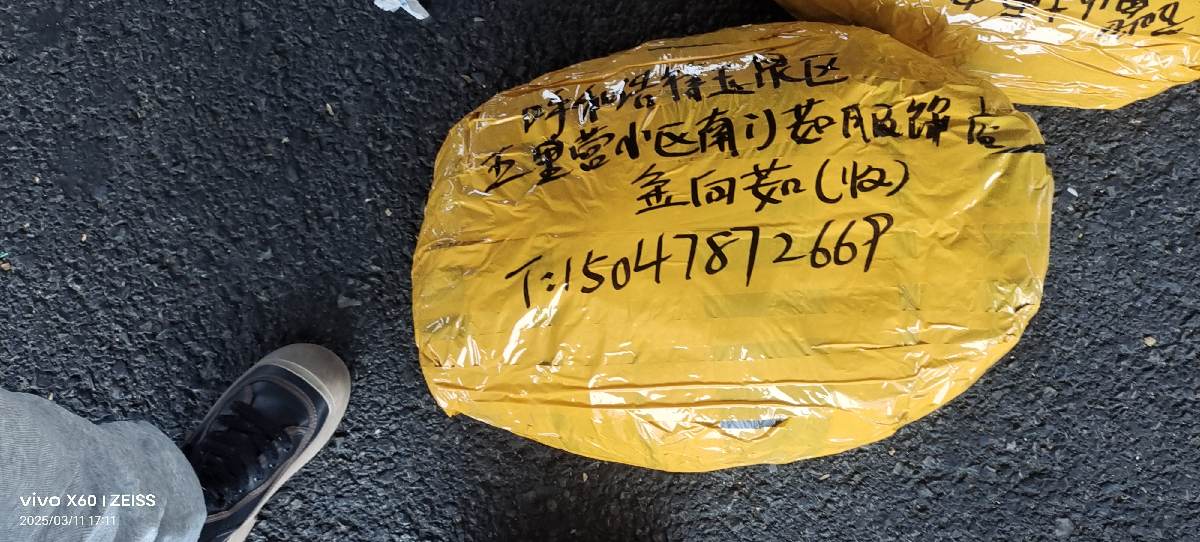 呼和浩特玉泉区
五里营小区南门茹服饰店
金向茹(收)
T:15047872669
vivo X60 | ZEISS
2025/03/11 17:11